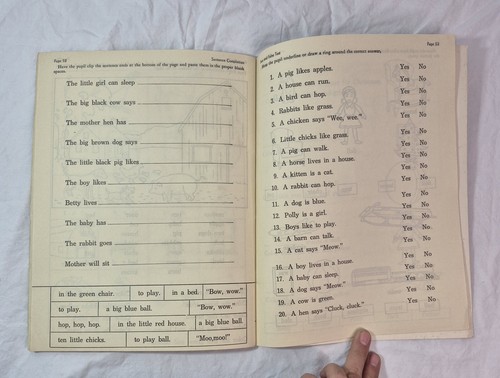 Page 52 Sentence Completion
Have the pupil clip the sentence ends at the bottom of the page and paste them in the proper blank
spaces.
The little girl can sleep
The big black cow says
The mother hen has
The big brown dog says
The little black pig likes
The boy likes
Betty lives
The baby has
The rabbit goes
Mother will sit
in the green chair. to play. in a bed. "Bow, wow."
to play. a big blue ball. "Bow, wow."
hop, hop, hop. in the little red house. a big blue ball.
ten little chicks. to play ball. "Moo, moo!"
Test Page 53
Have the pupil underline or draw a ring around the correct answer.
1. A pig likes apples. Yes No
2. A house can run. Yes No
3. A bird can hop. Yes No
4. Rabbits like grass. Yes No
5. A chicken says "Wee, wee." Yes No
6. Little chicks like grass. Yes No
7. A pig can walk. Yes No
8. A horse lives in a house. Yes No
9. A kitten is a cat. Yes No
10. A rabbit can hop. Yes No
11. A dog is blue. Yes No
12. Polly is a girl. Yes No
13. Boys like to play. Yes No
14. A barn can talk. Yes No
15. A cat says "Meow." Yes No
16. A boy lives in a house. Yes No
17. A baby can sleep. Yes No
18. A dog says "Meow." Yes No
19. A cow is green. Yes No
20. A hen says "Cluck, cluck." Yes No